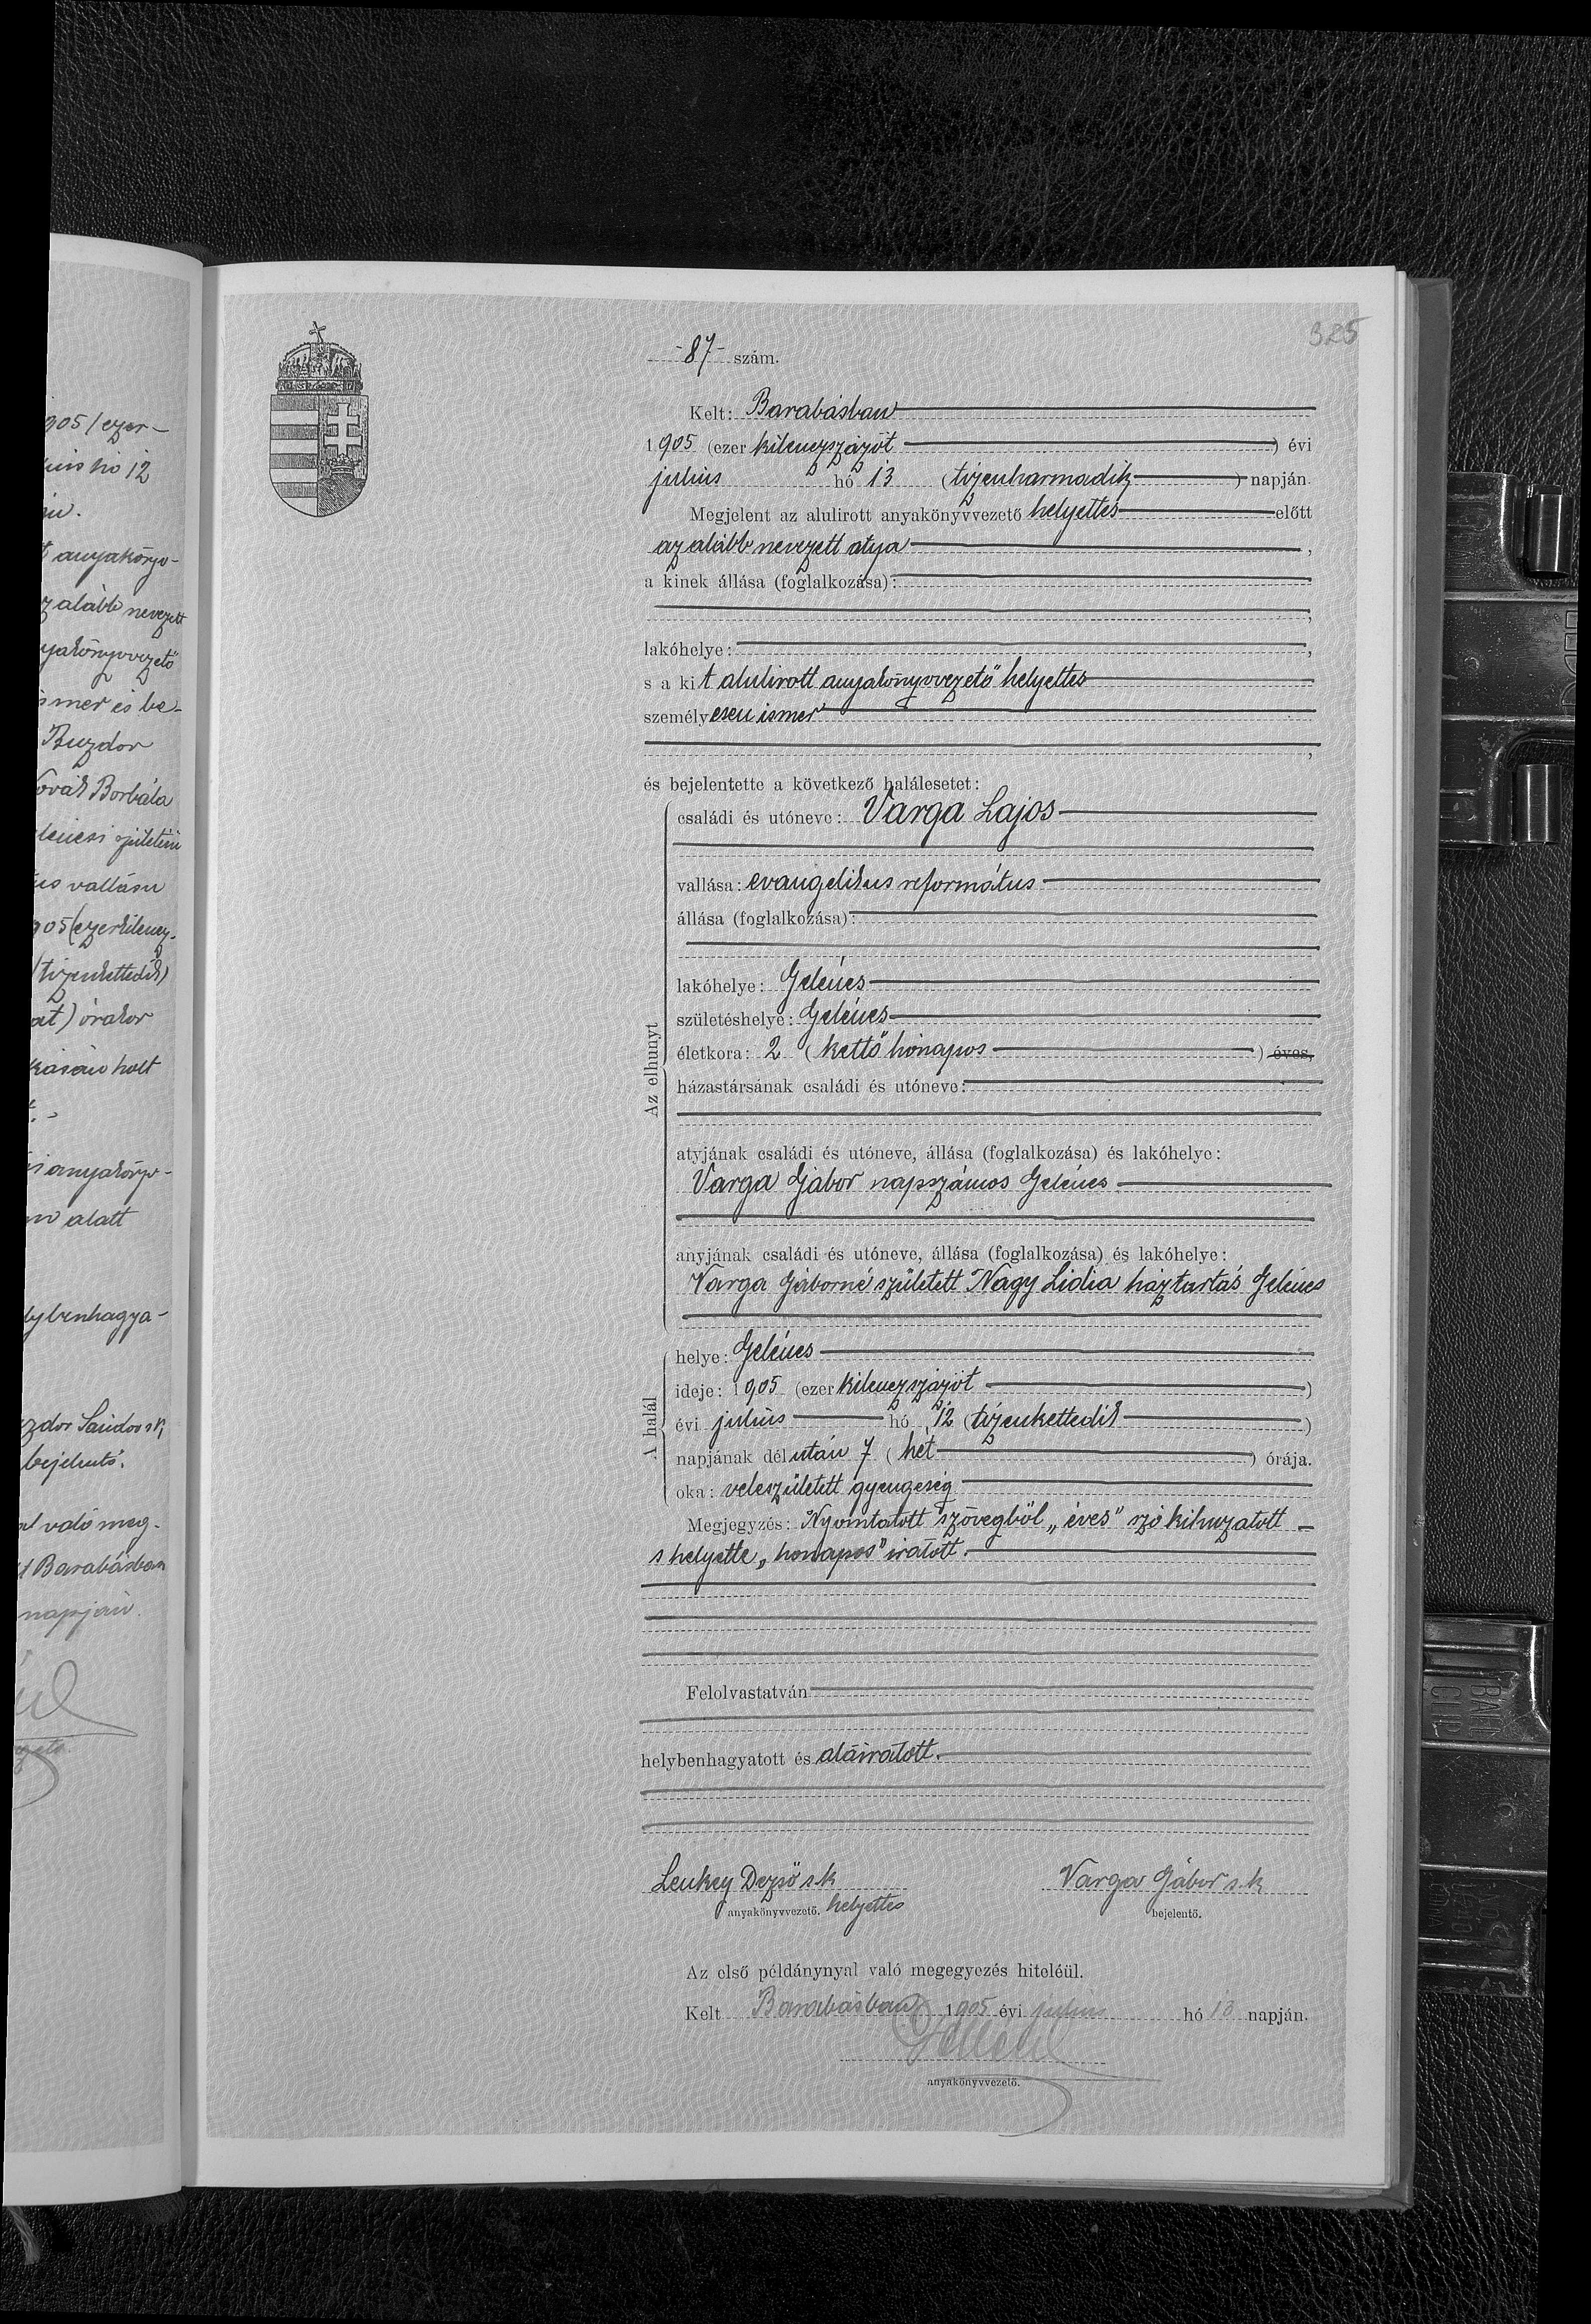 905 / ezer-
hó 12
anyakönyv-
alább nevezett
anyakönyvvezető
ismer és be-
Buzdor
Borbála
születésü
vallásu
905 (ezerkilencz-
(tizenkettedik)
órakor
holt
anyakönyv-
alatt
helybenhagya-
Sándor sk,
bejelentő.
való meg-
Barabásban
napján.
325
-87- szám.
Kelt: Barabásban
1905 (ezer kilenczszázöt ) évi
julius hó 13 (tizenharmadik ) napján.
Megjelent az alulirott anyakönyvvezető helyettes előtt
az alább nevezett atya ,
a kinek állása (foglalkozása):
,
lakóhelye: ,
s a kit alulirott anyakönyvvezető helyettes
személyesen ismer
,
és bejelentette a következő halálesetet:
Az elhunyt
családi és utóneve: Varga Lajos
vallása: evangelikus református
állása (foglalkozása):
lakóhelye: Gelénes
születéshelye: Gelénes
életkora: 2 (kettő hónapos ) éves,
házastársának családi és utóneve:
atyjának családi és utóneve, állása (foglalkozása) és lakóhelye:
Varga Gábor napszámos Gelénes
anyjának családi és utóneve, állása (foglalkozása) és lakóhelye:
Varga Gáborné született Nagy Lidia háztartás Gelénes
A halál
helye: Gelénes
ideje: 1905 (ezer kilenczszázöt )
évi julius hó 12 (tizenkettedik )
napjának délután 7 (hét ) órája.
oka: veleszületett gyengeség
Megjegyzés: Nyomtatott szövegből „éves" szó kihuzatott
s helyette „honapos" iratott.
Felolvastatván
helybenhagyatott és aláiratott.
Lenkey Dezső sk Varga Gábor s.k
anyakönyvvezető. helyettes bejelentő.
Az első példánynyal való megegyezés hiteléül.
Kelt Barabásban 1905 évi julius hó 13 napján.
anyakönyvvezető.